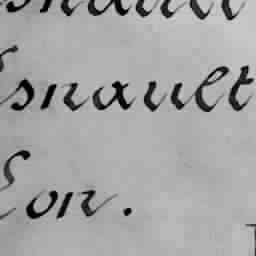 Esnault
Esnault
Eon.